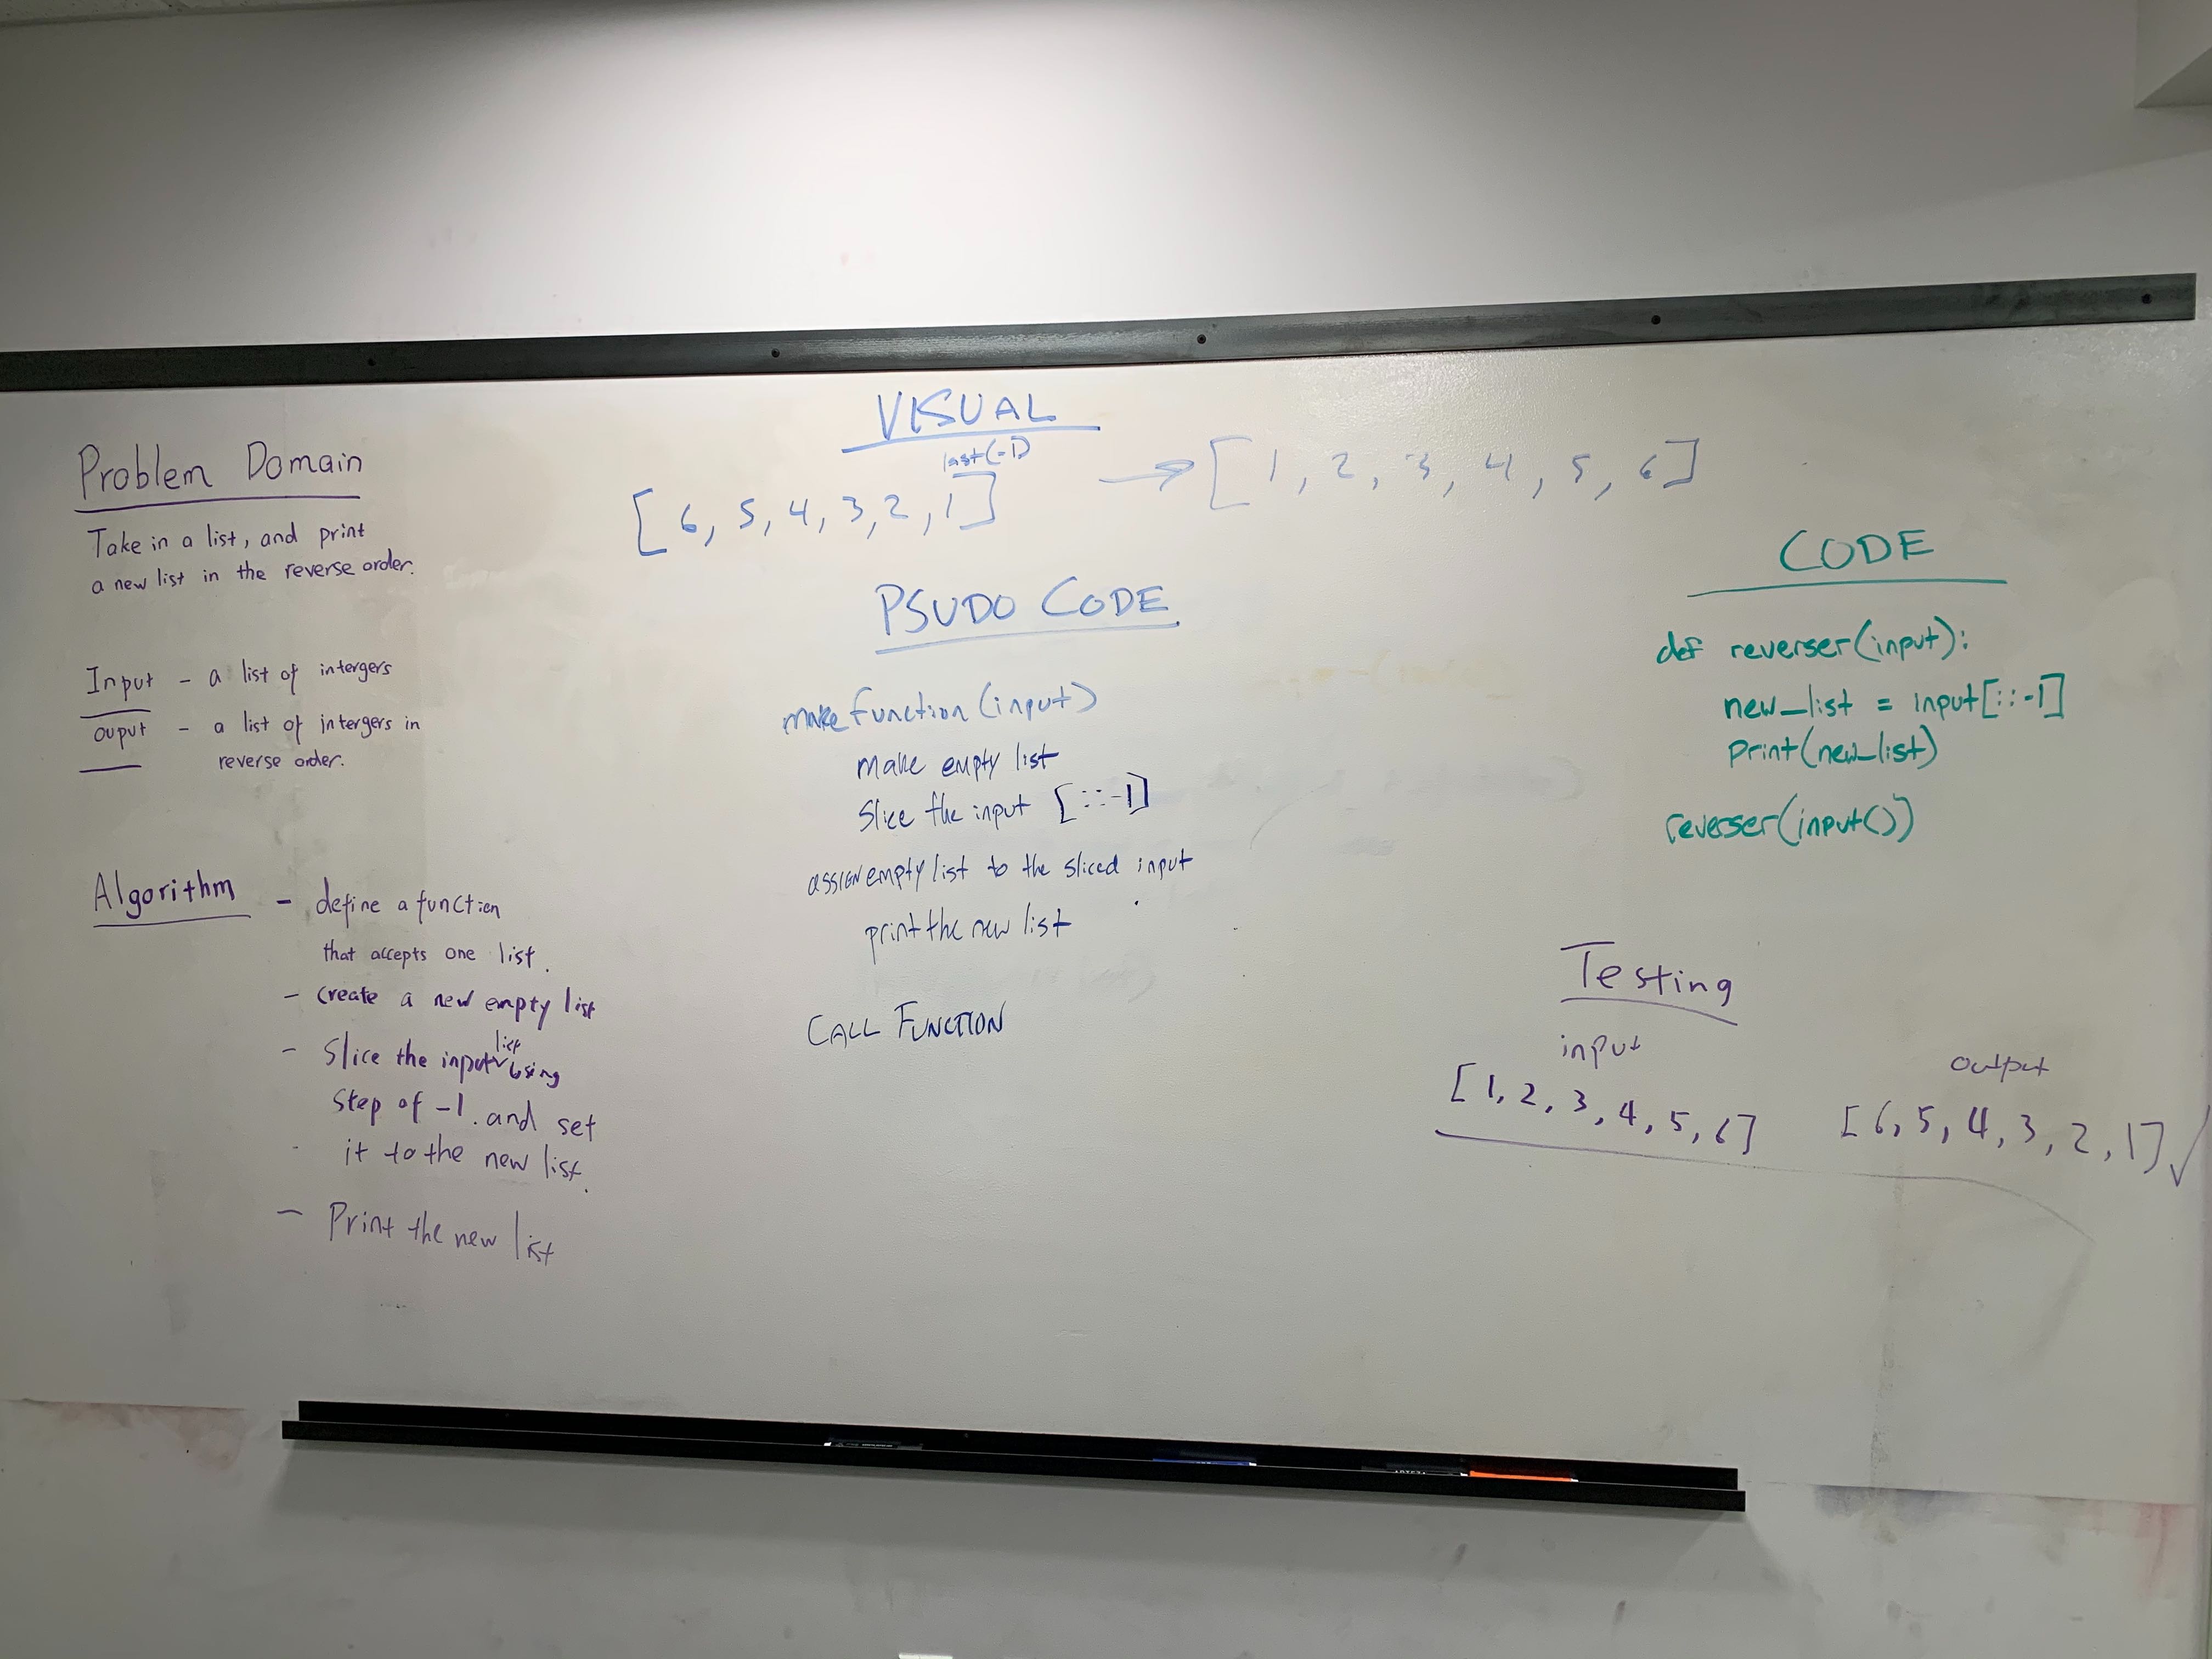 Problem Domain
Take in a list, and print
a new list in the reverse order.
Input - a list of intergers
ouput - a list of intergers in
reverse order.
Algorithm - define a function
that accepts one list.
- create a new empty list
- Slice the input list using
Step of -1. and set
it to the new list.
- Print the new list
VISUAL
last(-1)
[6, 5, 4, 3, 2, 1] → [1, 2, 3, 4, 5, 6]
PSUDO CODE
make function (input)
make empty list
Slice the input [::-1]
assign empty list to the sliced input
print the new list
CALL FUNCTION
CODE
def reverser(input):
new_list = input[::-1]
print(new_list)
reverser(input())
Testing
input output
[1, 2, 3, 4, 5, 6] [6, 5, 4, 3, 2, 1] ✓